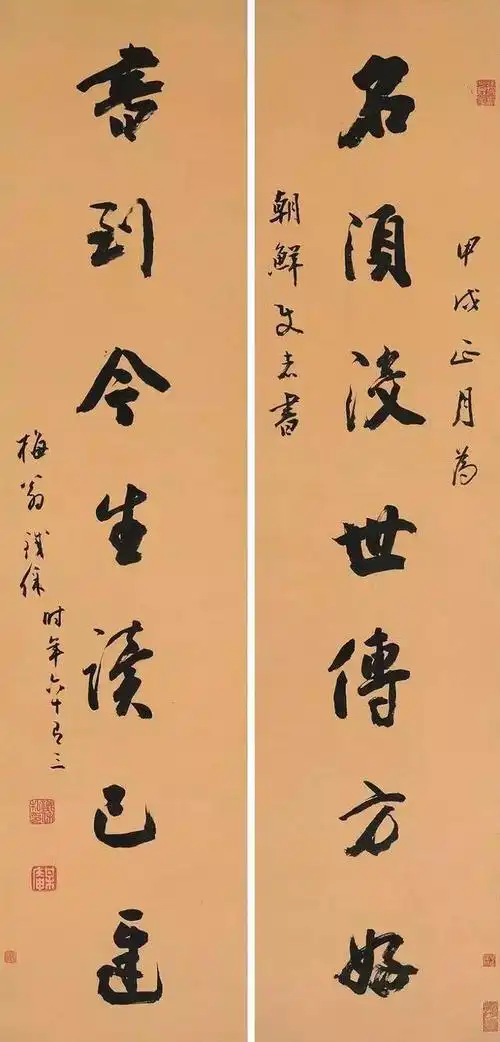 甲戌正月為
名須没世傳方好
朝鮮使者書
書到今生讀已遲
梅翁鐵保時年六十有三